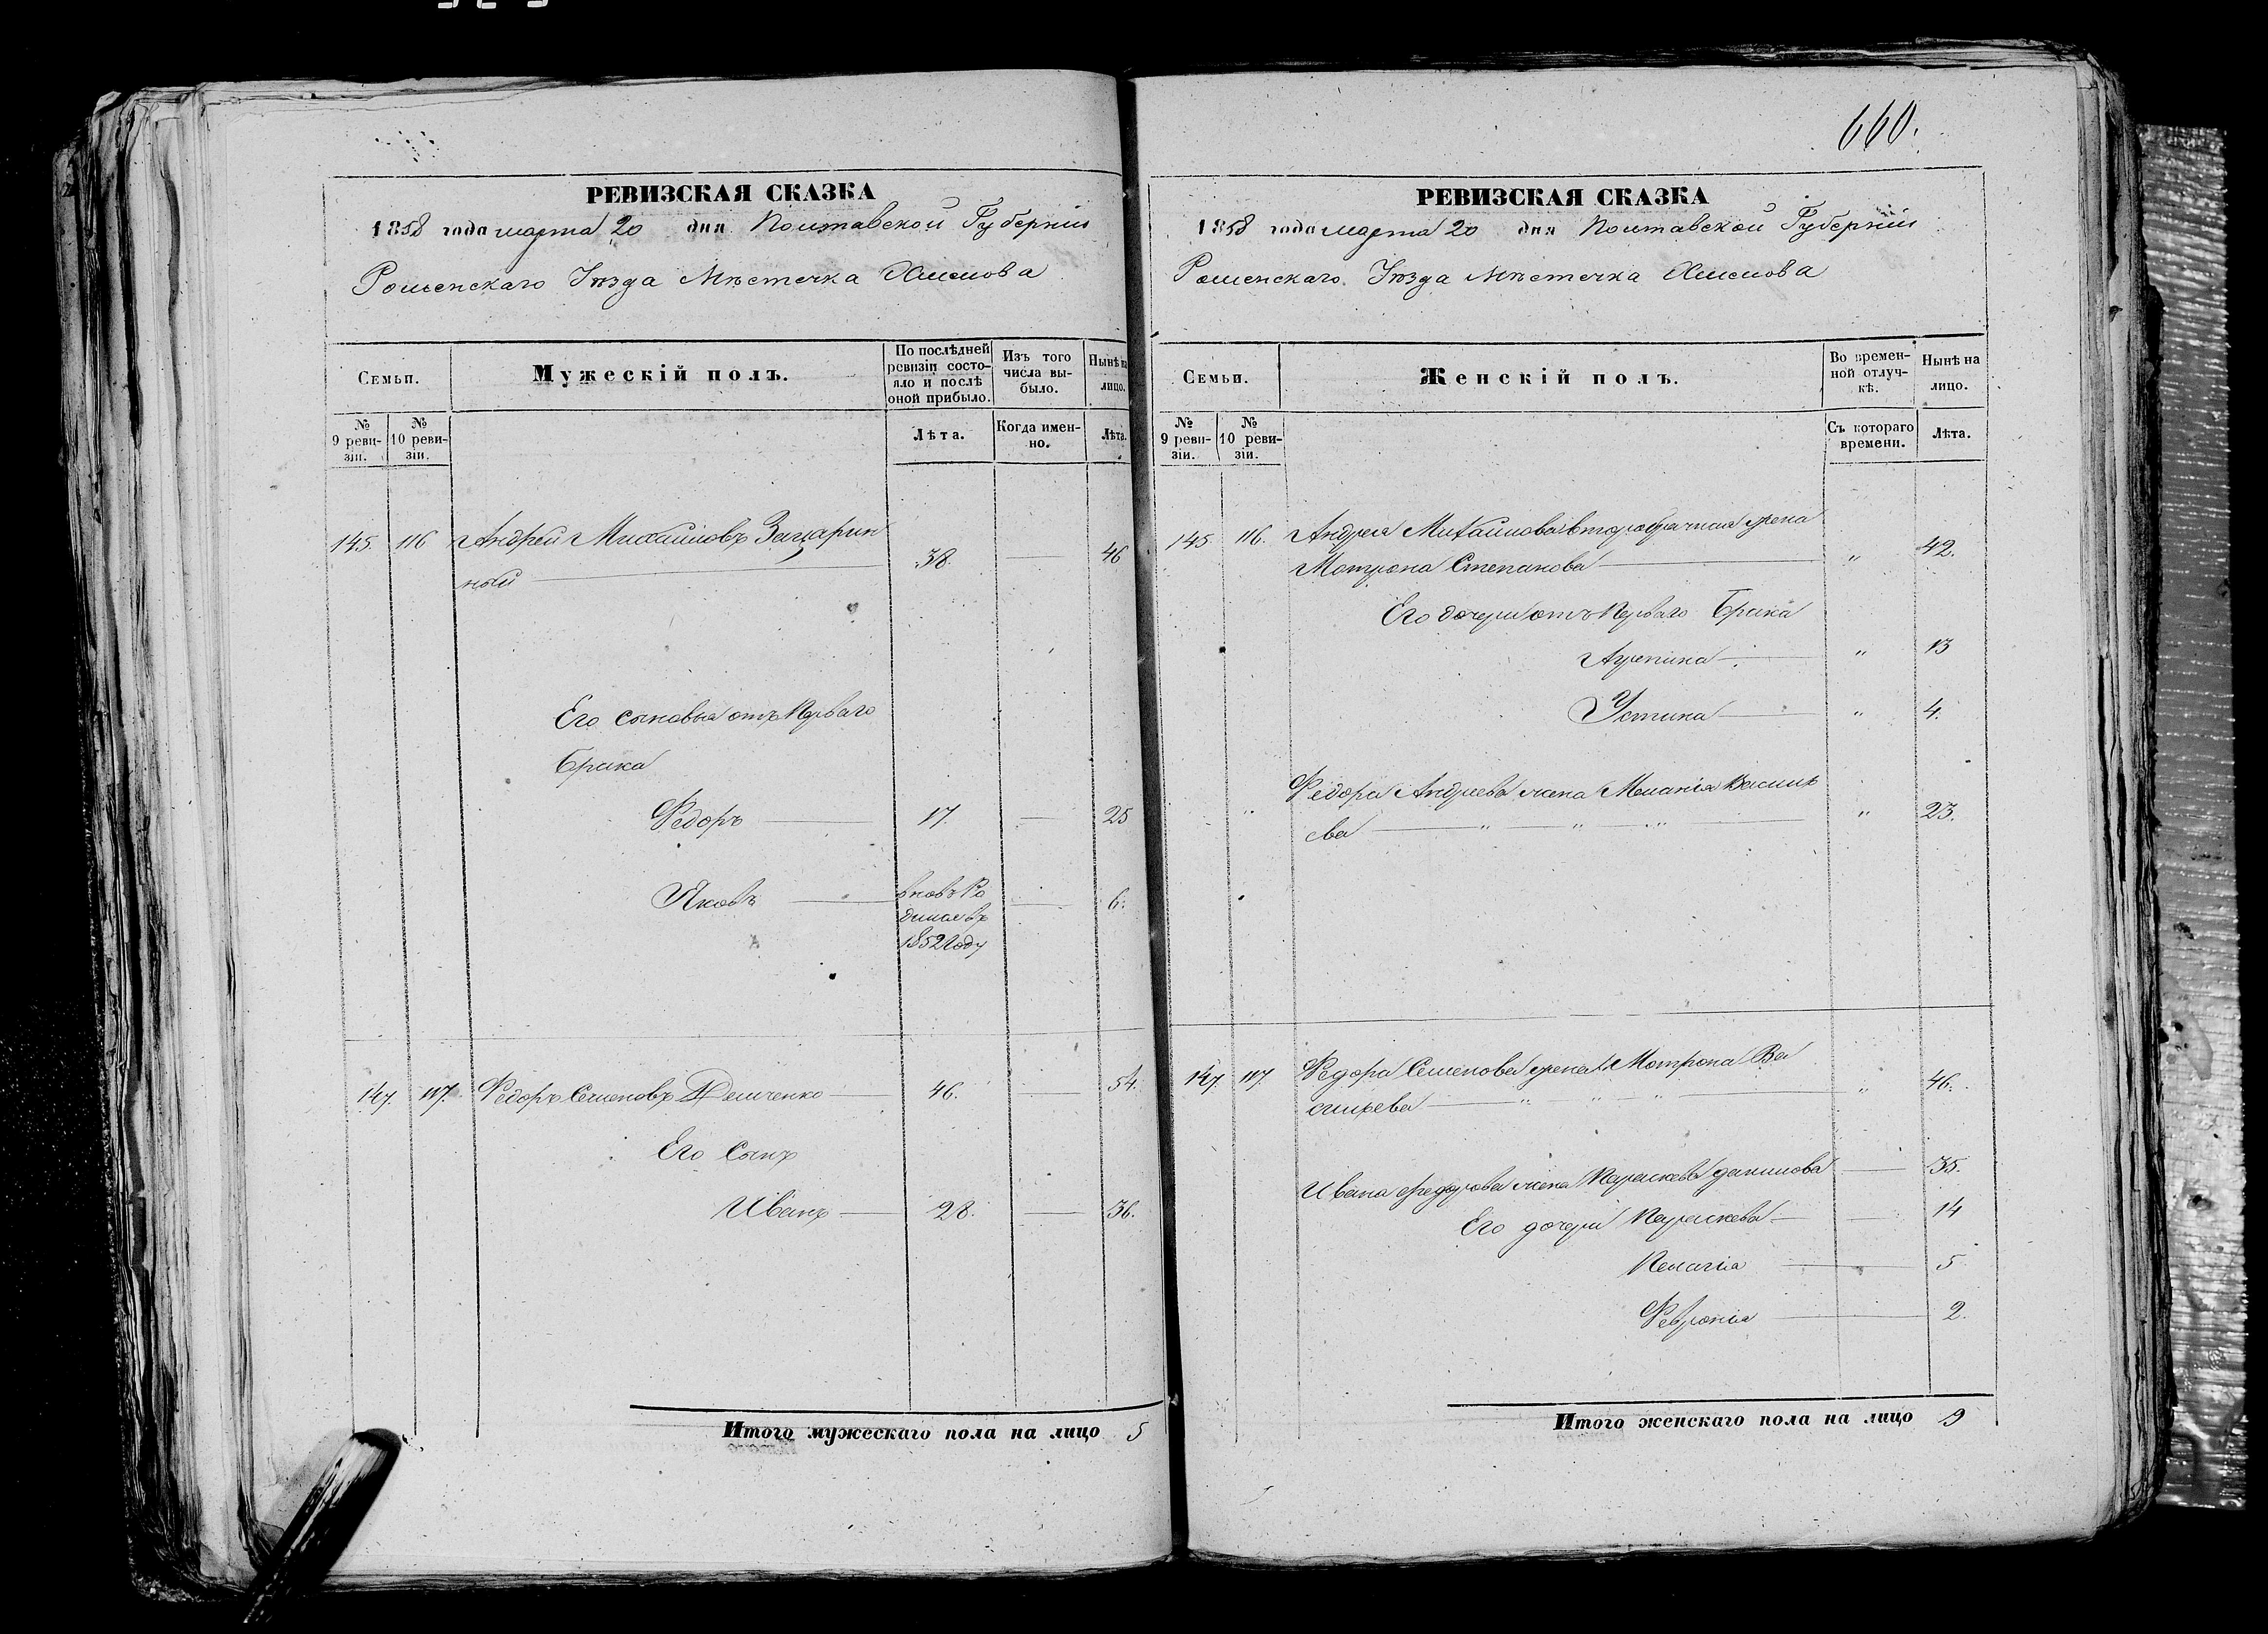 660.
РЕВИЗСКАЯ СКАЗКА
1858 года марта 20 дня Полтавской Губерніи
Роменскаго Уѣзда Мѣстечка Смелова
Семьи.
Мужескій полъ.
По послѣдней ревизіи состояло и послѣ оной прибыло.
Изъ того числа выбыло.
Нынѣ на лицо.
№ 9 ревизіи.
№ 10 ревизіи.
Лѣта.
Когда именно.
Лѣта.
145. 116 Андрей Михайловъ Зацарин
ный 38. 46
Его сыновья отъ перваго
брака
Федоръ 17. 25
Яковъ вновь Ро 6.
дился въ
1852 Году
147. 117. Федоръ Семеновъ Демченко 46. 54.
Его Сынъ
Иванъ 28. 36.
Итого мужескаго пола на лицо 5
РЕВИЗСКАЯ СКАЗКА
1858 года марта 20 дня Полтавской Губерніи
Роменскаго Уѣзда Мѣстечка Смелова
Семьи.
Женскій полъ.
Во временной отлучкѣ.
Нынѣ на лицо.
№ 9 ревизіи.
№ 10 ревизіи.
Съ котораго времени.
Лѣта.
145 116. Андрея Михайлова второбрачная жена
Мотрона Степанова " 42.
Его дочери отъ перваго брака
" 13
Устина " 4.
" Федора Андреева жена Меланія Василь
ева " " " " 23.
147. 117. Федора Семенова жена Мотрона Ва
сильева " " " " 46.
Ивана Федорова жена Параскева Данилова 35.
Его дочери Параскева 14
Пелагія 5
Февронія 2.
Итого женскаго пола на лицо 9